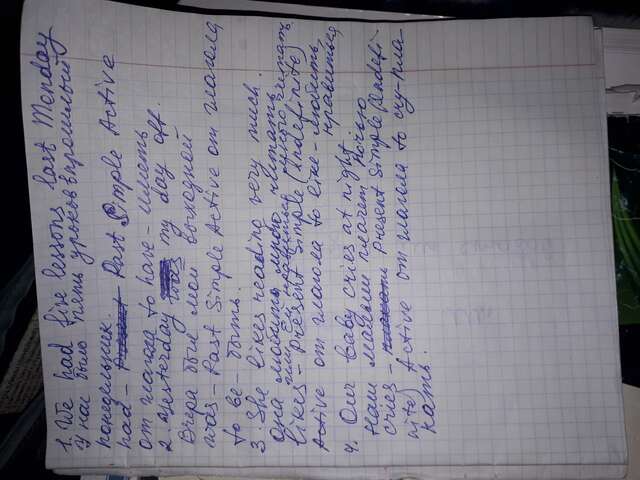 1. We had five lessons last Monday
У нас было пять уроков в прошлый
понедельник.
had – Past Simple Active
от глагола to have – иметь
2. yesterday was my day off.
Вчера был мой выходной
was – Past Simple Active от глагола
to be быть.
3. She likes reading very much.
Она любит много читать
Ей нравится много читать
likes – Present Simple (Indefinite)
Active от глагола to like – любить,
нравиться
4. Our baby cries at night.
Наш малыш плачет ночью
cries – Present Simple (Indefi-
nite) Active от глагола to cry – пла-
кать.